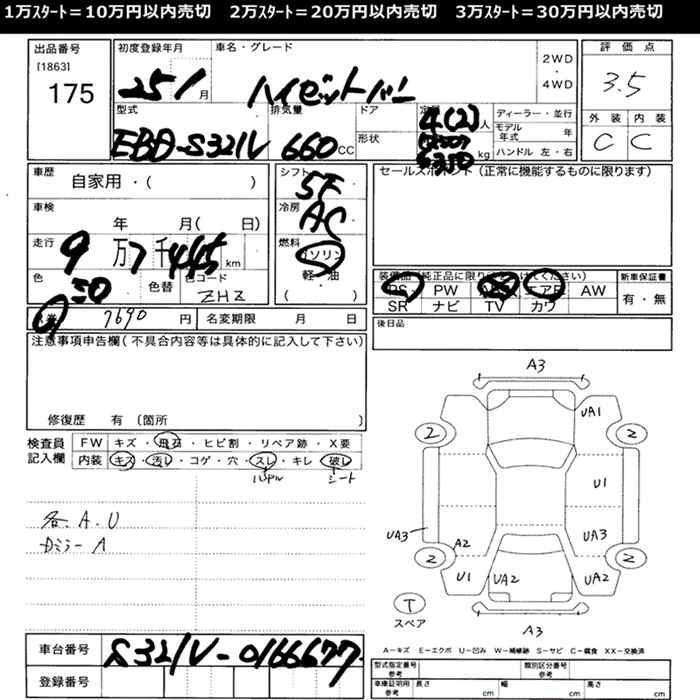 1万スタート=10万円以内売切 2万スタート=20万円以内売切 3万スタート=30万円以内売切
出品番号 初度登録年月 車名・グレード 2WD・4WD 評価点
[1863]
175 25 1月 ハイゼットバン 3.5
型式 排気量 ドア 定員 ディーラー・並行 外装 内装
EBD-S321V 660CC 形状 4(2)人 モデル年式 年 C C
350 kg ハンドル 左・右
車歴 自家用・( ) シフト 5F セールスポイント(正常に機能するものに限ります)
車検 年 月( 日) 冷房 AC
走行 9万7千445km 燃料 ガソリン・軽油
色 色替 色コード ZHZ
装備品(純正品に限りマルを付けてください) 新車保証書
PS PW エアB AW 有・無
SR ナビ TV カワ
7690円 名変期限 月 日 後日品
注意事項申告欄(不具合内容等は具体的に記入して下さい)
修復歴 有 [箇所
検査員記入欄 FW キズ・飛石・ヒビ割・リペア跡・X要
内装 キズ・汚レ・コゲ・穴・スレ・キレ・破レ
ハンドル シート
各A.U
Dミラー A
A3
UA1
2 2
U1
UA3 A2 UA3
2 2
U1 UA2 UA2
T
スペア
A3
A-キズ E-エクボ U-凹み W-補修跡 S-サビ C-腐食 XX-交換済
車台番号 S321V-0166677
登録番号
型式指定番号 参考 類別区分番号 参考
車庫証明用 参考 長さ cm 幅 cm 高さ cm